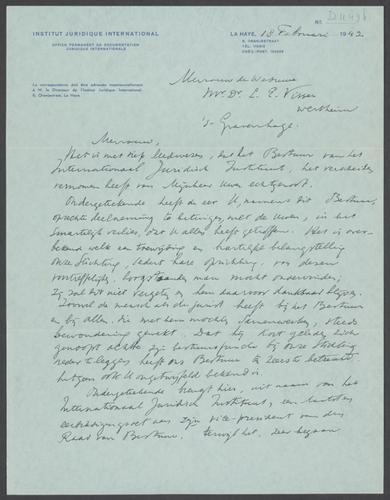 INSTITUT JURIDIQUE INTERNATIONAL
OFFICE PERMANENT DE DOCUMENTATION
JURIDIQUE INTERNATIONALE
La correspondance doit être adressée impersonnellement
à M. le Directeur de l'Institut Juridique International,
6, Oranjestraat, La Haye.
No.
LA HAYE, 18 Februari 1942
6, ORANJESTRAAT
TÉL.
CHÈQ. POST.
Mevrouw de Weduwe
Mr. Dr. L. E. Visser
Wertheim
's-Gravenhage.
Mevrouw,
Het is met diep leedwezen, dat het Bestuur van het
Internationaal Juridisch Instituut, het verscheiden
vernomen heeft van Uwen echtgenoot.
Ondergetekende heeft de eer U, namens dit Bestuur,
oprechte deelneming te betuigen, met de Uwen, in het
smartelijk verlies, dat U allen heeft getroffen. Het is over-
bekend welk een toewijding en hartelijke belangstelling
onze Stichting, sedert hare oprichting, van dezen
voortreffelijken, hoogstaanden man mocht ondervinden;
zij zal dit niet vergeten en hem daarvoor dankbaar blijven.
Zoowel de mensch als de jurist heeft bij het Bestuur
en bij allen, die met hem mochten samenwerken, steeds
bewondering gewekt. Dat hij kort geleden zich
genoopt achtte zijn bestuursfunctie bij onze Stichting
neder te leggen heeft ons Bestuur ten zeerste betreurd
hetgeen ook U ongetwijfeld bekend is.
Ondergetekende brengt hier, uit naam van het
Internationaal Juridisch Instituut, een laatsten
eerbiedigen groet aan zijn vice-president van den
Raad van Bestuur, terwijl het, zeer begaan